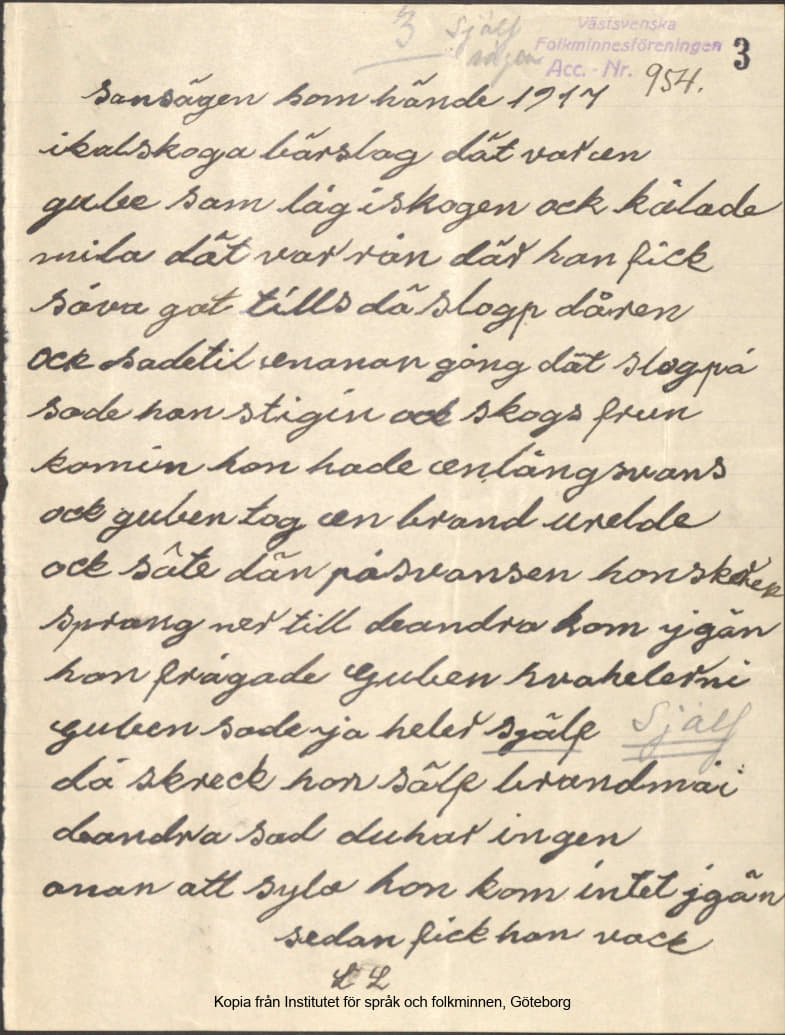 3 Själf sägen
Västsvenska
Folkminnesföreningen
Acc. - Nr. 954.
3
sansägen som hände 1917
ikalskoga bärslag dät var en
gube sam låg iskogen ock kålade
mila dät var rån där han fick
såva gat tills dä slogp dåren
ock sadetil enanan gång dät slogpå
sade han stigin ock skogs frun
komin hon hade enlångsvans
ock guben tog en brand urelde
ock säte dän påsvansen hon skrek
sprang ner till deandra kom jgän
hon frågade Guben hvahelerni
guben sade ja heler själf Själf
då skreck hon sälf brandmäi
deandra sad duhar ingen
anan att syla hon kom intet jgän
sedan fick han vack
L L
Kopia från Institutet för språk och folkminnen, Göteborg